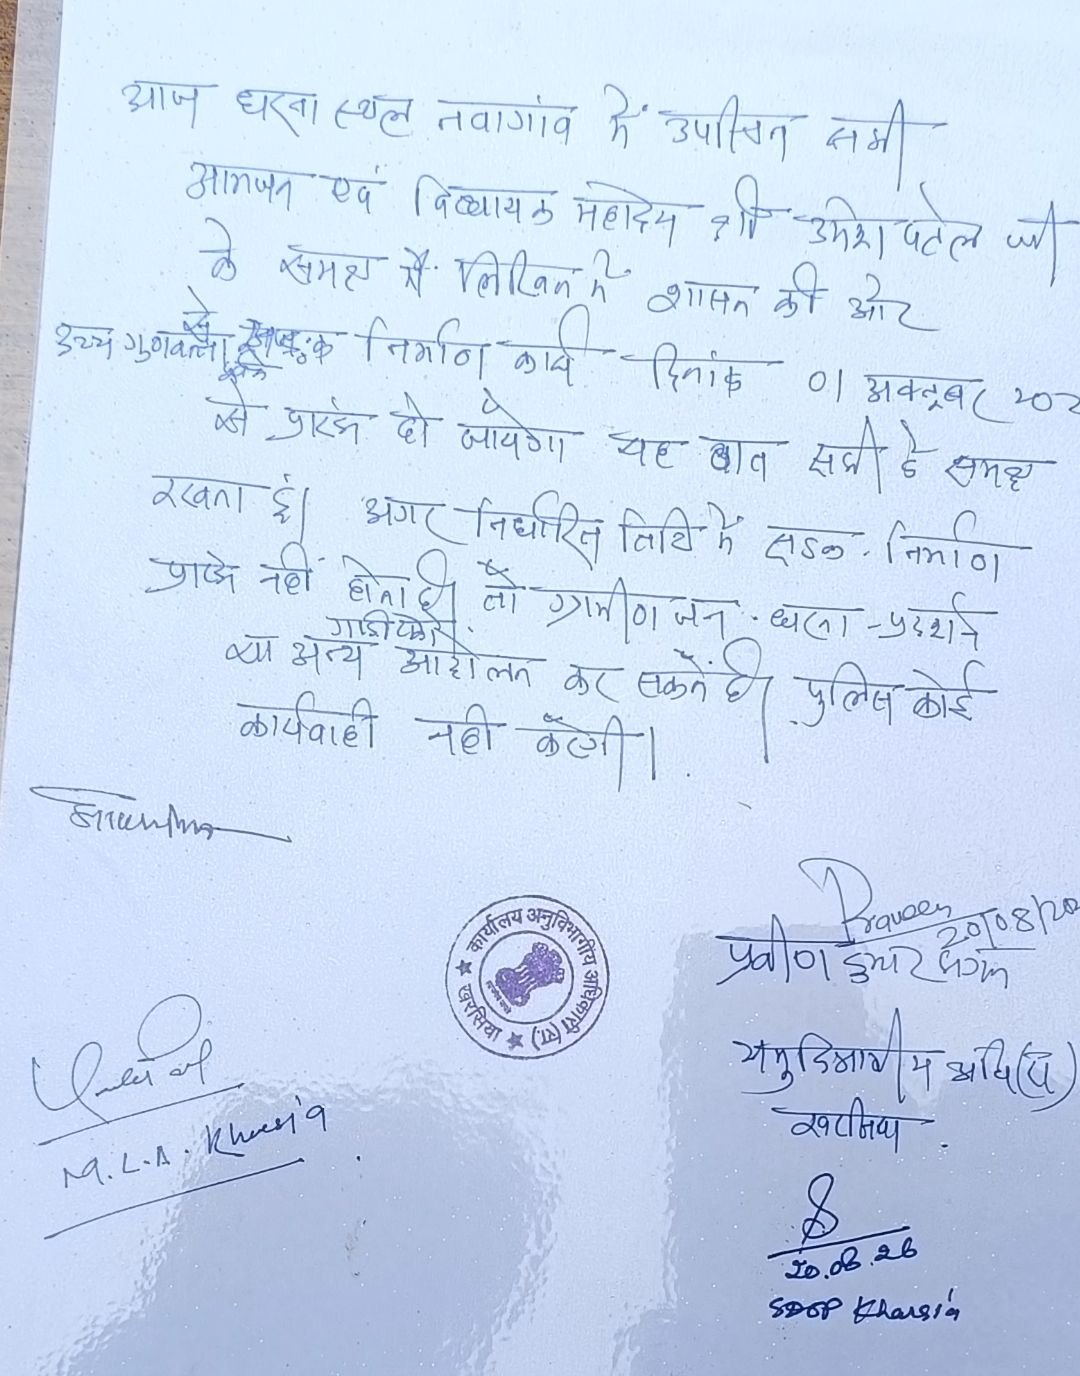 आज धरना स्थल नवागांव में उपस्थित सभी
आमजन एवं विधायक महोदय श्री उमेश पटेल जी
के समक्ष मैं लिखित में शासन की ओर
से उच्च गुणवत्ता सड़क निर्माण कार्य दिनांक 01 अक्टूबर 202
से प्रारंभ हो जायेगा यह बात सभी के समक्ष
रखता हूं। अगर निर्धारित तिथि में सड़क निर्माण
प्रारंभ नहीं होता है तो ग्रामीण जन धरना-प्रदर्शन
या अन्य आंदोलन कर सकते है। पुलिस कोई
कार्यवाही नही करेगी।
Praveen
20/08/20
प्रवीण कुमार भगत
अनुविभागीय अधि (रा)
खरसिया
कार्यालय अनुविभागीय अधिकारी (रा.)
खरसिया
M.L.A. Kharsia
20.08.26
SDOP Kharsia